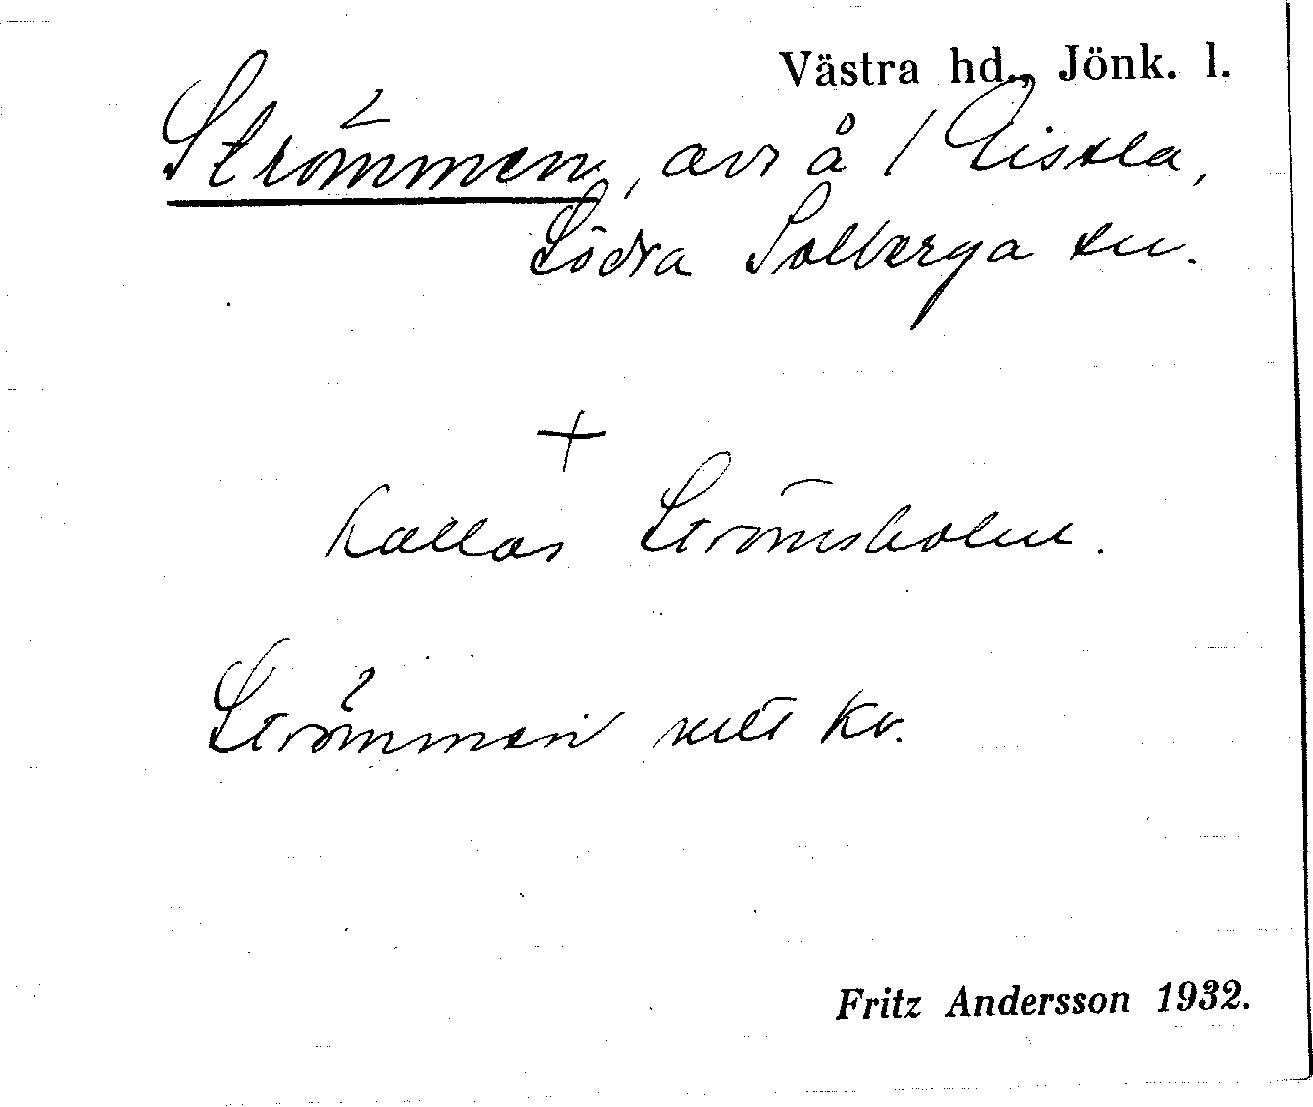 Västra hd., Jönk. l.
Strömmen, avs å
Södra Solberga sn.
+
Kallas Strömsholm.
Strömmen kv.
Fritz Andersson 1932.